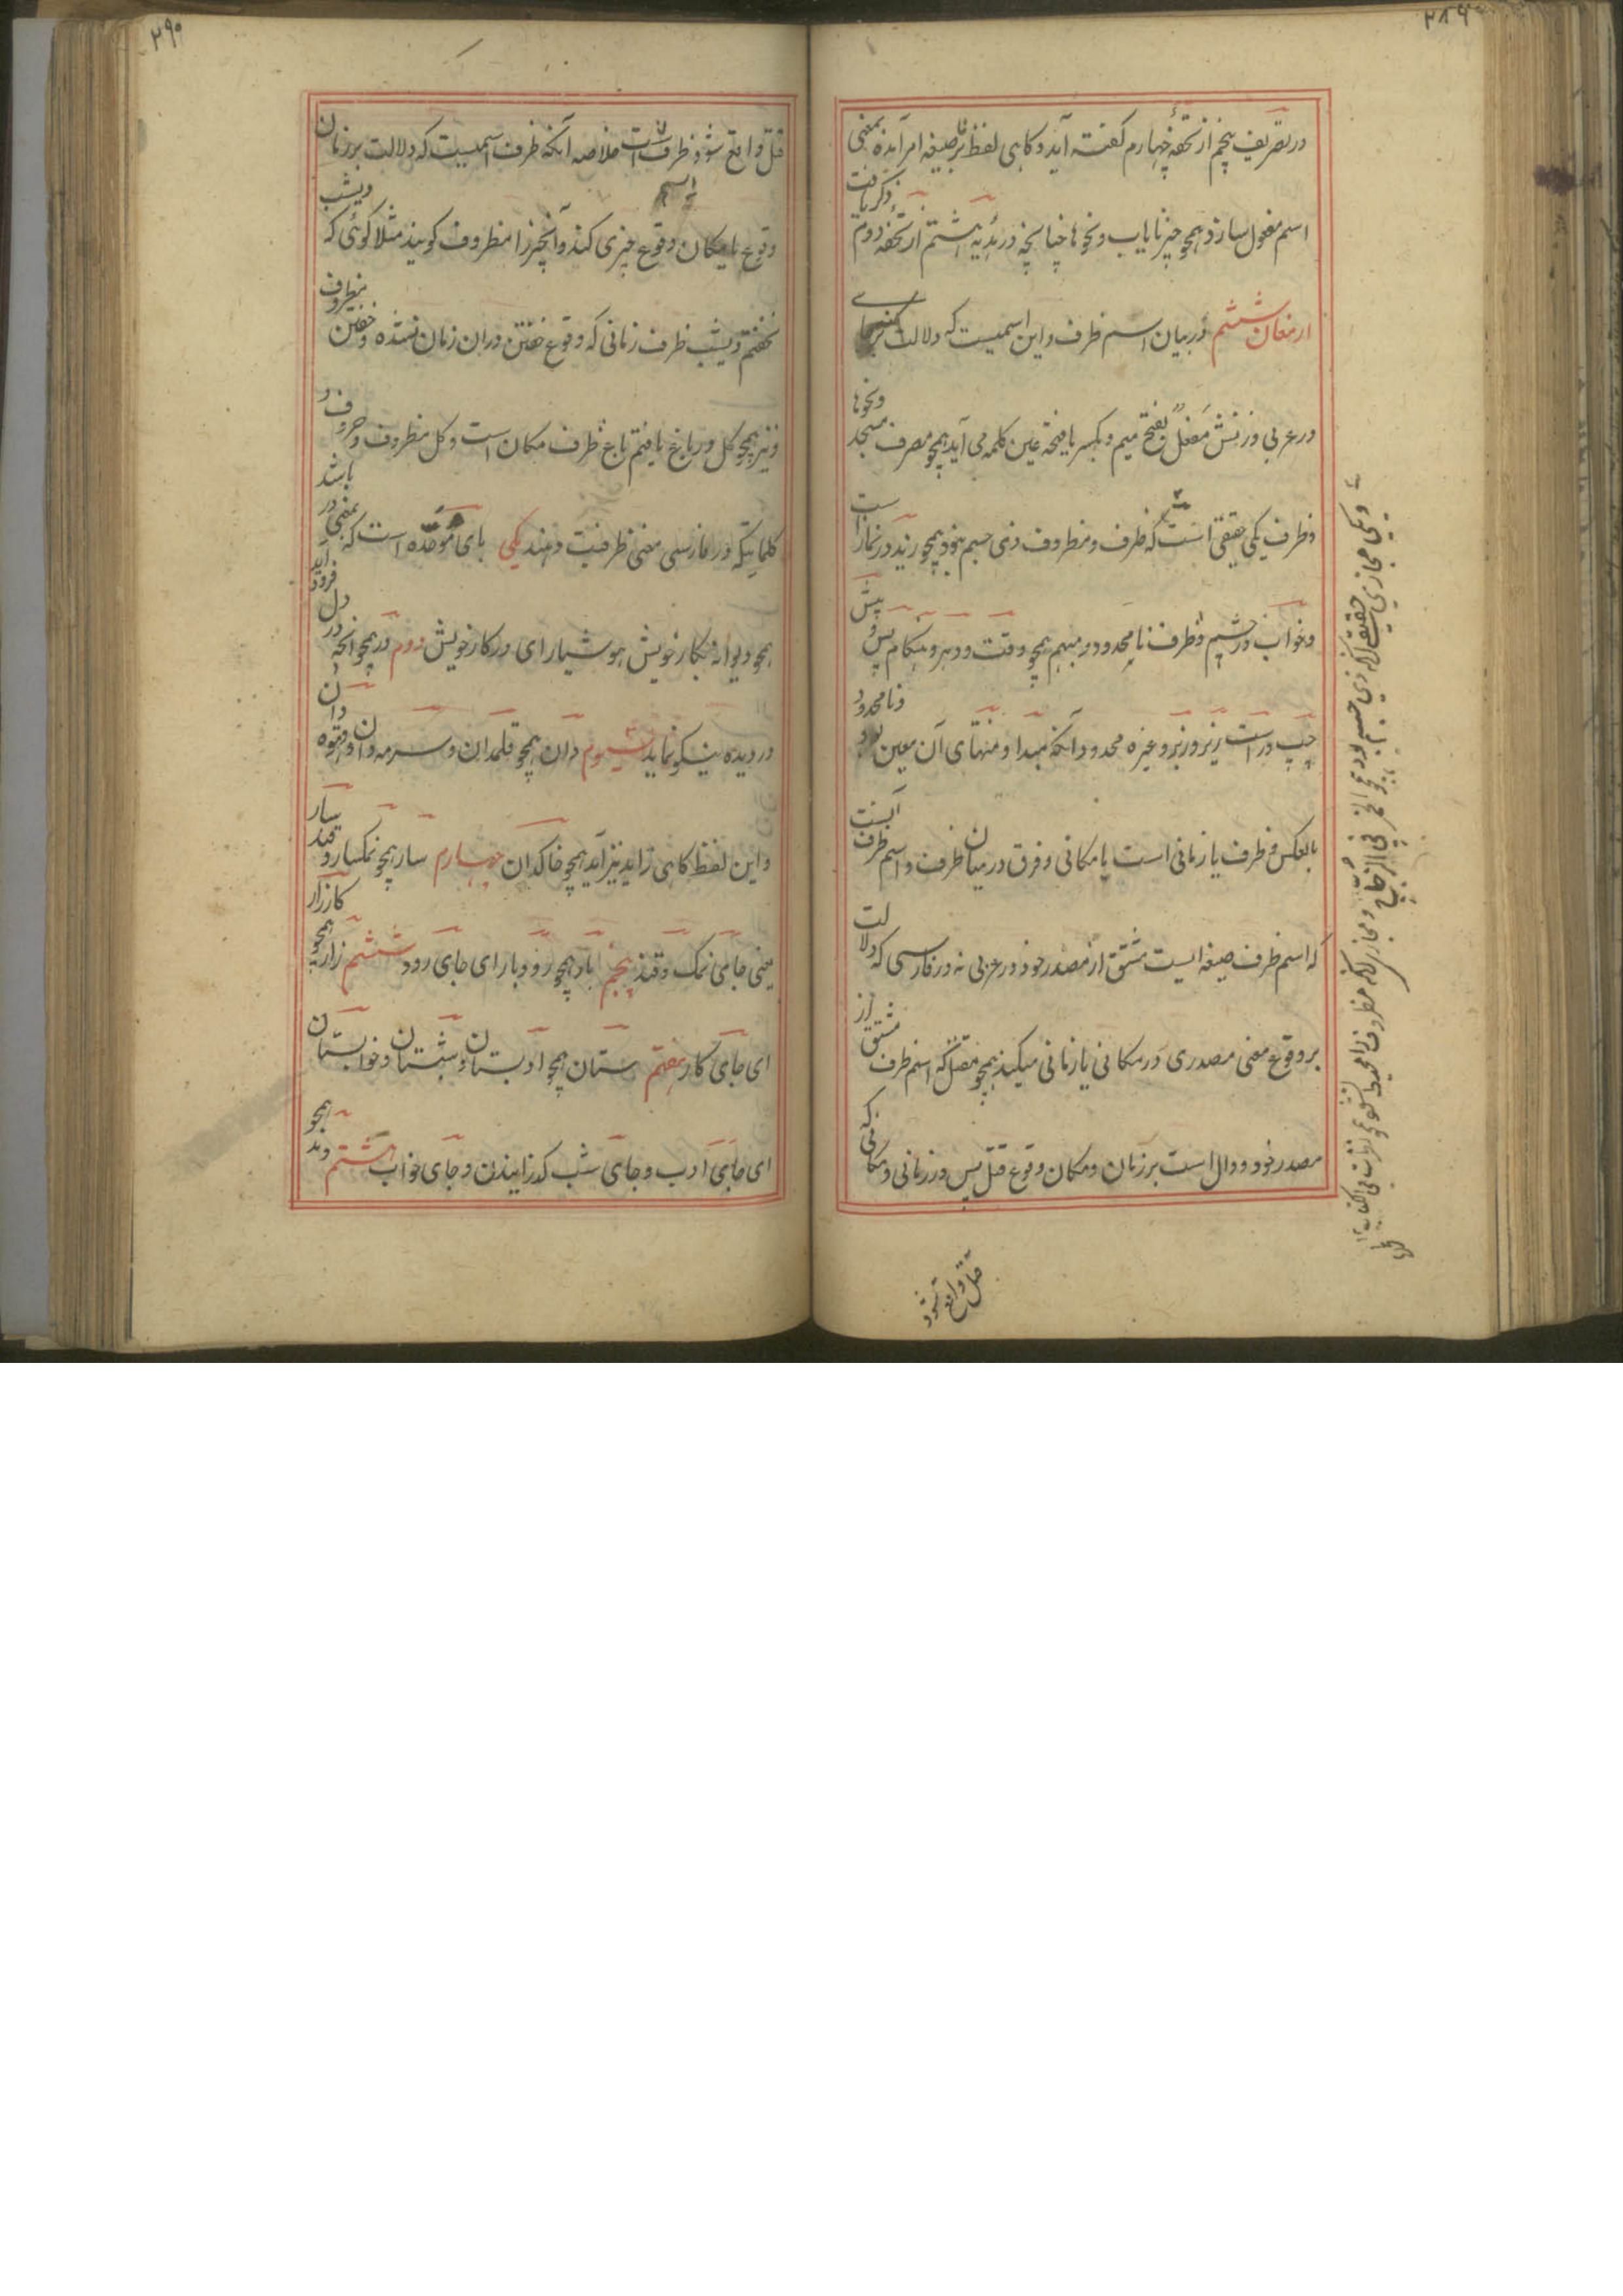 ۲۸۹
در تصریف پنجم از تحفهٔ چهارم گفته آید و کاهی لفظ نا بر صیغه امر آمده بمعنی
اسم مفعول سازد همچو چیز نایاب و نحوها چنانچه در هدیه هشتم از تحفهٔ دوم ذکر یافت
ارمغان ششم در بیان اسم ظرف و این اسمیست که دلالت کند بر جای
در عربی وزنش مفعل بفتح میم و بکسر یا فتحه عین کلمه می آید همچو مصرف مسجد و نحوها
و ظرف یکی حقیقی است که ظرف و مظروف ذی جسم بود همچو زید در نماز است
و خواب در چشم و ظرف نامحدود مبهم همچو وقت و دهر و هنکام پس و پیش
چپ و راست زیر و زبر و غیره محدود آنکه مبدا و منتهای آن معین بود و نامحدود
بالعکس و ظرف یا زمانی است یا مکانی و فرق درمیان ظرف و اسم ظرف آنست
که اسم ظرف صیغه ایست مشتق از مصدر خود در عربی نه در فارسی که دلالت
بر وقوع معنی مصدری در مکانی یا زمانی میکند همچو مقتل که اسم ظرف مشتق از
مصدر خود و دال است بر زمان و مکان وقوع قتل پس در زمانی و مکانی که
قتل واقع شود
و یکی مجازی حقیقی آنکه ذی جسم بود همچو الخمر فی الزجاج
و مجازی آنکه مظروف را محیط نشود همچو نظرت فی الکتاب
۲۹۰
قتل واقع شود ظرف است خلاصه آنکه ظرف اسمیست که دلالت بر زمان
وقوع یا مکان وقوع چیزی کند و آنچیز را مظروف کویند مثلا کوئی که دیشب
نخفتم دیشب ظرف زمانی که وقوع خفتن دران زمان نشده و خفتن مظروف
و نیز همچو کل در باغ یافتم باغ ظرف مکان است و کل مظروف و حروف و
کلماتیکه در فارسی معنی ظرفیت دهند یکی بای موحده است که بمعنی در باشد
همچو دیوانه بکار خویش هوشیار ای در کار خویش دوم در همچو آنچه در دل فرود آید
در دیده نیکو نماید سیوم دان همچو قلمدان و سرمه دان و قهوه دان
و این لفظ کاهی زاید نیز آید همچو خاکدان چهارم سار همچو نمکسار و قند سار
یعنی جای نمک و قند پنجم بار همچو رودبار ای جای رود ششم زار همچو کارزار
ای جای کار هفتم ستان همچو ادبستان و شبستان و خوابستان
ای جای ادب و جای شب کذرانیدن و جای خواب هشتم وند همچو